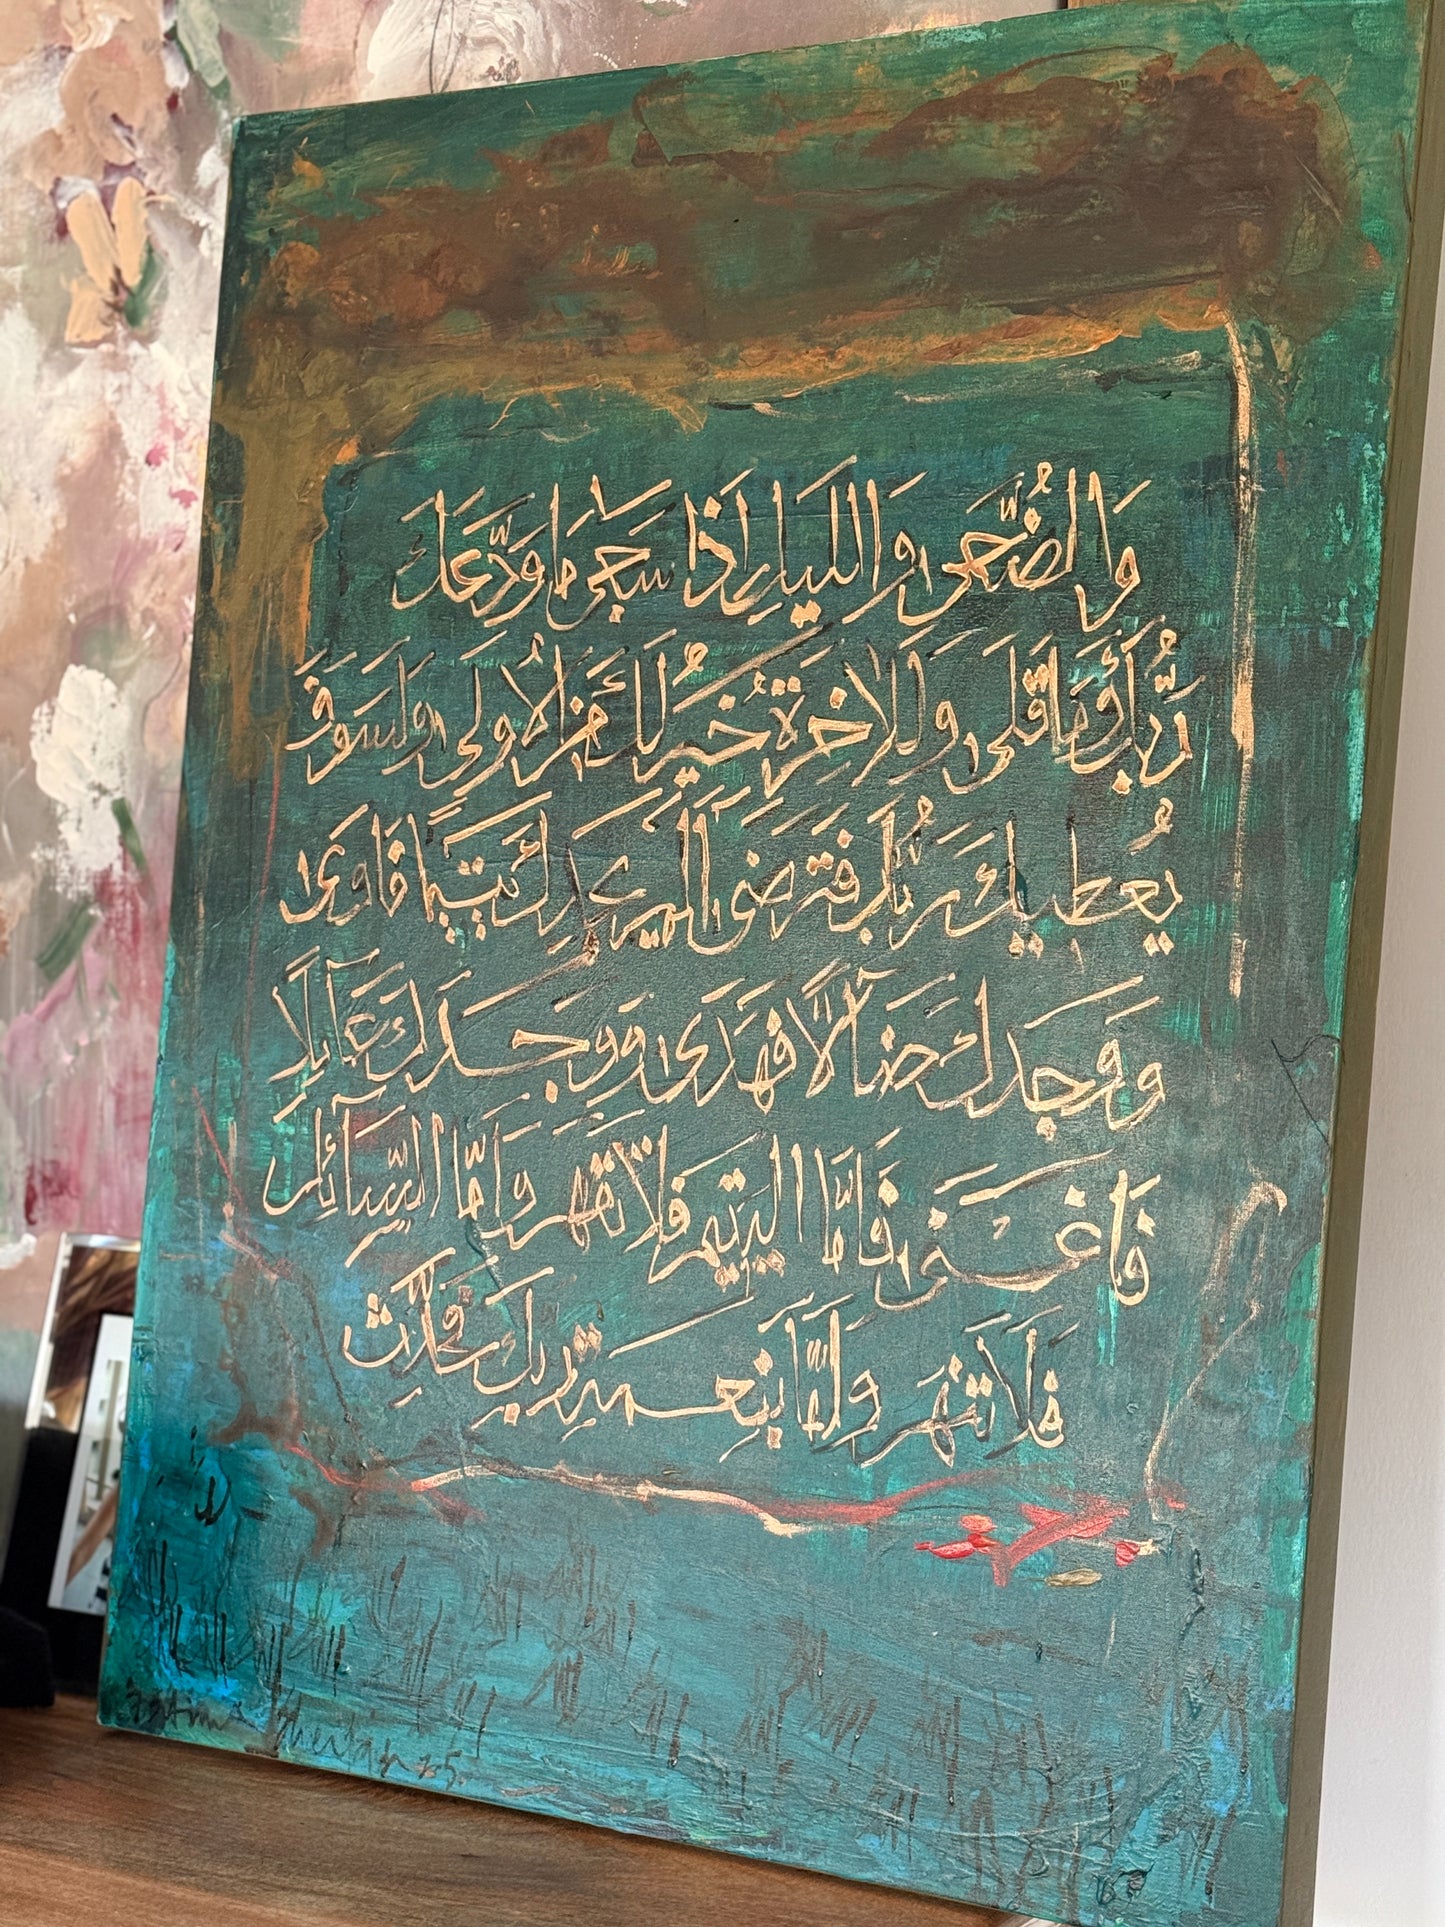 وَالضُّحَى وَالَّيلِ إِذَا سَجَى مَا وَدَّعَكَ
رَبُّكَ وَمَا قَلَى وَلَلاخِرَةُ خَيرُ لَكَ مِنَ الاُولَى وَلَسَوفَ
يُعطِيكَ رَبُّكَ فَتَرضَى اَلَم يَجِدكَ يَتِيمًا فَاوَى
وَوَجَدَكَ ضَآلًّا فَهَدَى وَوَجَدَكَ عَآئِلًا
فَاَغنَى فَاَمَّا اليَتِيمَ فَلَا تَقهَر وَاَمَّا السَّآئِلَ
فَلَا تَنهَر وَاَمَّا بِنِعمَةِ رَبِّكَ فَحَدِّث